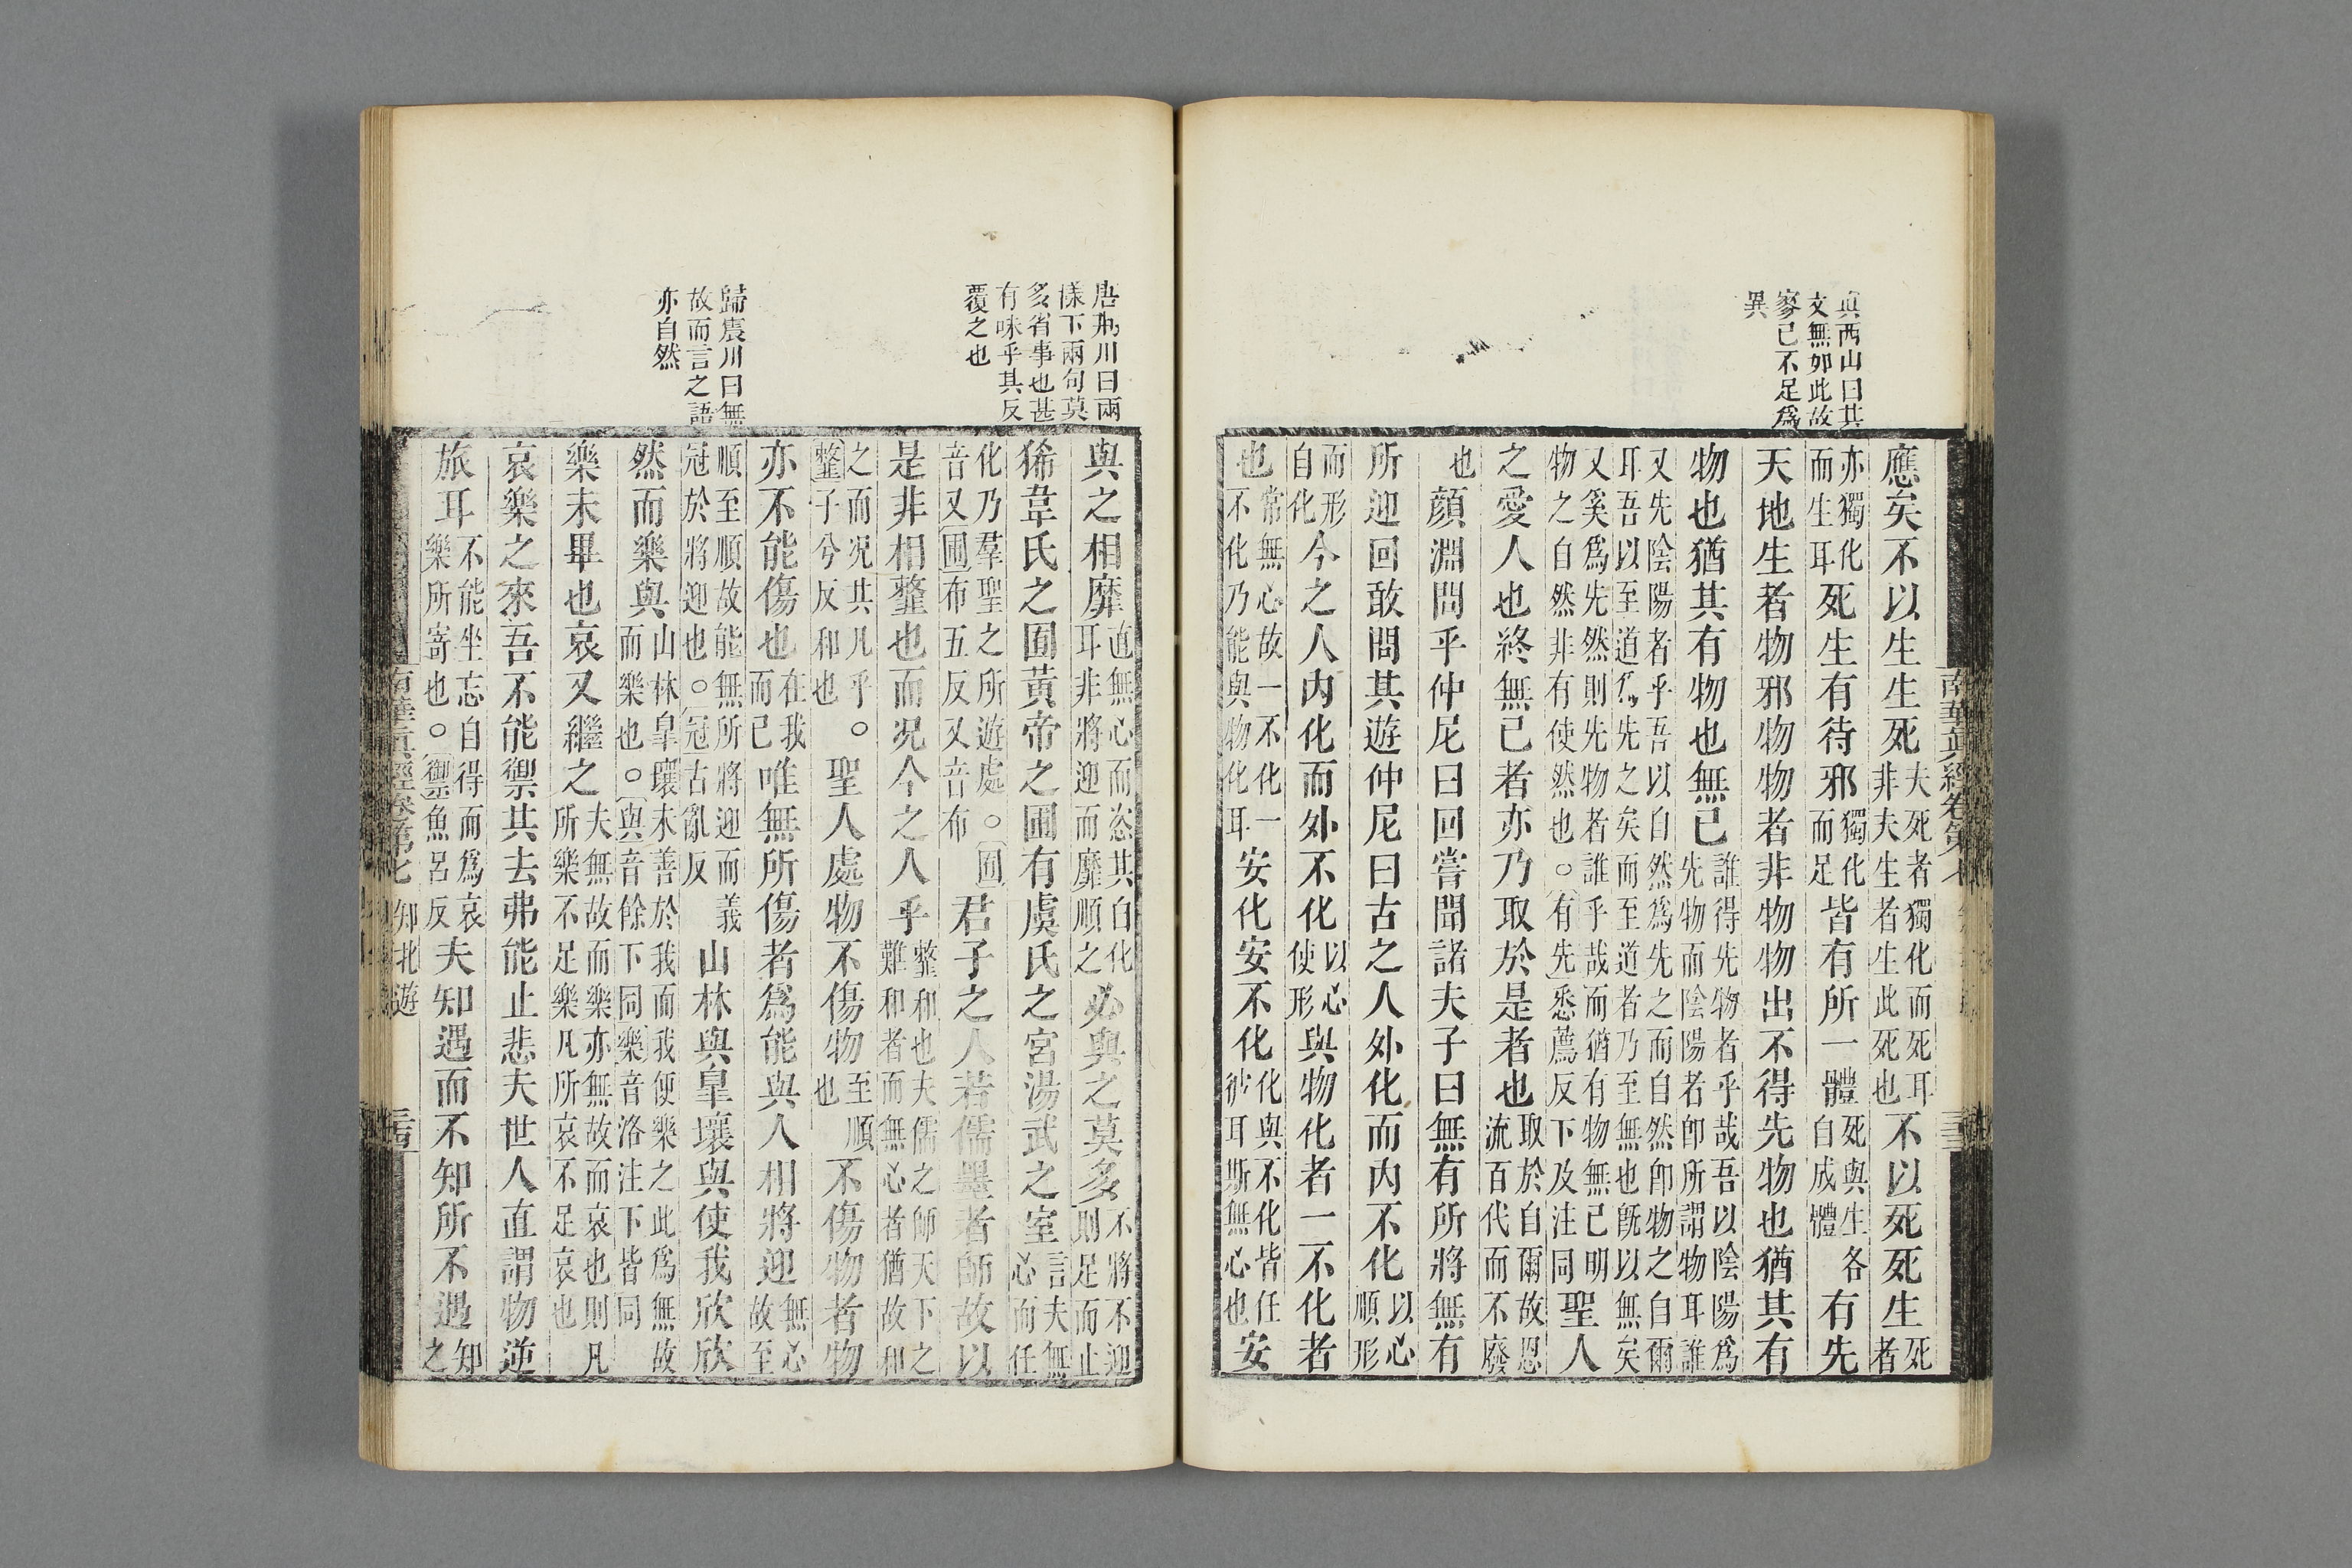 真西山曰其
文無如此故
寥已不足爲
異
應矣不以生生死夫死者獨化而死耳非夫生者生此死也不以死死生死者
亦獨化而生耳死生有待邪獨化而足皆有所一體死與生各自成體有先
天地生者物邪物物者非物物出不得先物也猶其有
物也猶其有物也無已誰得先物者乎哉吾以陰陽爲先物而陰陽者卽所謂物耳誰
又先陰陽者乎吾以自然爲先之而自然卽物之自爾耳吾以至道爲先之矣而至道者乃至無也旣以無矣
又奚爲先然則先物者誰乎哉而猶有物無已明物之自然非有使然也○有先悉薦反下及注同聖人
之愛人也終無已者亦乃取於是者也取於自爾故恩流百代而不廢
也顏淵問乎仲尼曰回嘗聞諸夫子曰無有所將無有
所迎回敢問其遊仲尼曰古之人外化而內不化以心順形
而形自化今之人內化而外不化以心使形與物化者一不化者
也常無心故一不化一不化乃能與物化耳安化安不化化與不化皆任彼耳斯無心也安
南華眞經卷第七
唐荊川曰兩
㨾下兩句莫
多省事也甚
有味乎其反
覆之也
歸震川曰無
故而言之語
亦自然
與之相靡直無心而恣其自化耳非將迎而靡順之必與之莫多不將不迎則足而止
狶韋氏之囿黃帝之圃有虞氏之宮湯武之室言夫無心而任
化乃羣聖之所遊處○囿音又圃布五反又音布君子之人若儒墨者師故以
是非相䪠也而況今之人乎䪠和也夫儒墨之師天下之難和者而無心者猶故和
之而况其凡乎○䪠子兮反和也聖人處物不傷物至順也不傷物者物
亦不能傷也在我而已唯無所傷者爲能與人相將迎無心故至
順至順故能無所將迎而義冠於將迎也○冠古亂反山林與皐壤與使我欣欣
然而樂與山林皐壤未善於我而我便樂之此爲無故而樂也○與音餘下同樂音洛注下皆同
樂未畢也哀又繼之夫無故而樂亦無故而哀也則凡所樂不足樂凡所哀不足哀也
哀樂之來吾不能禦其去弗能止悲夫世人直謂物逆
旅耳不能坐忘自得而爲哀樂所寄也○禦魚呂反夫知遇而不知所不遇知之
南華眞經卷第七 知北遊